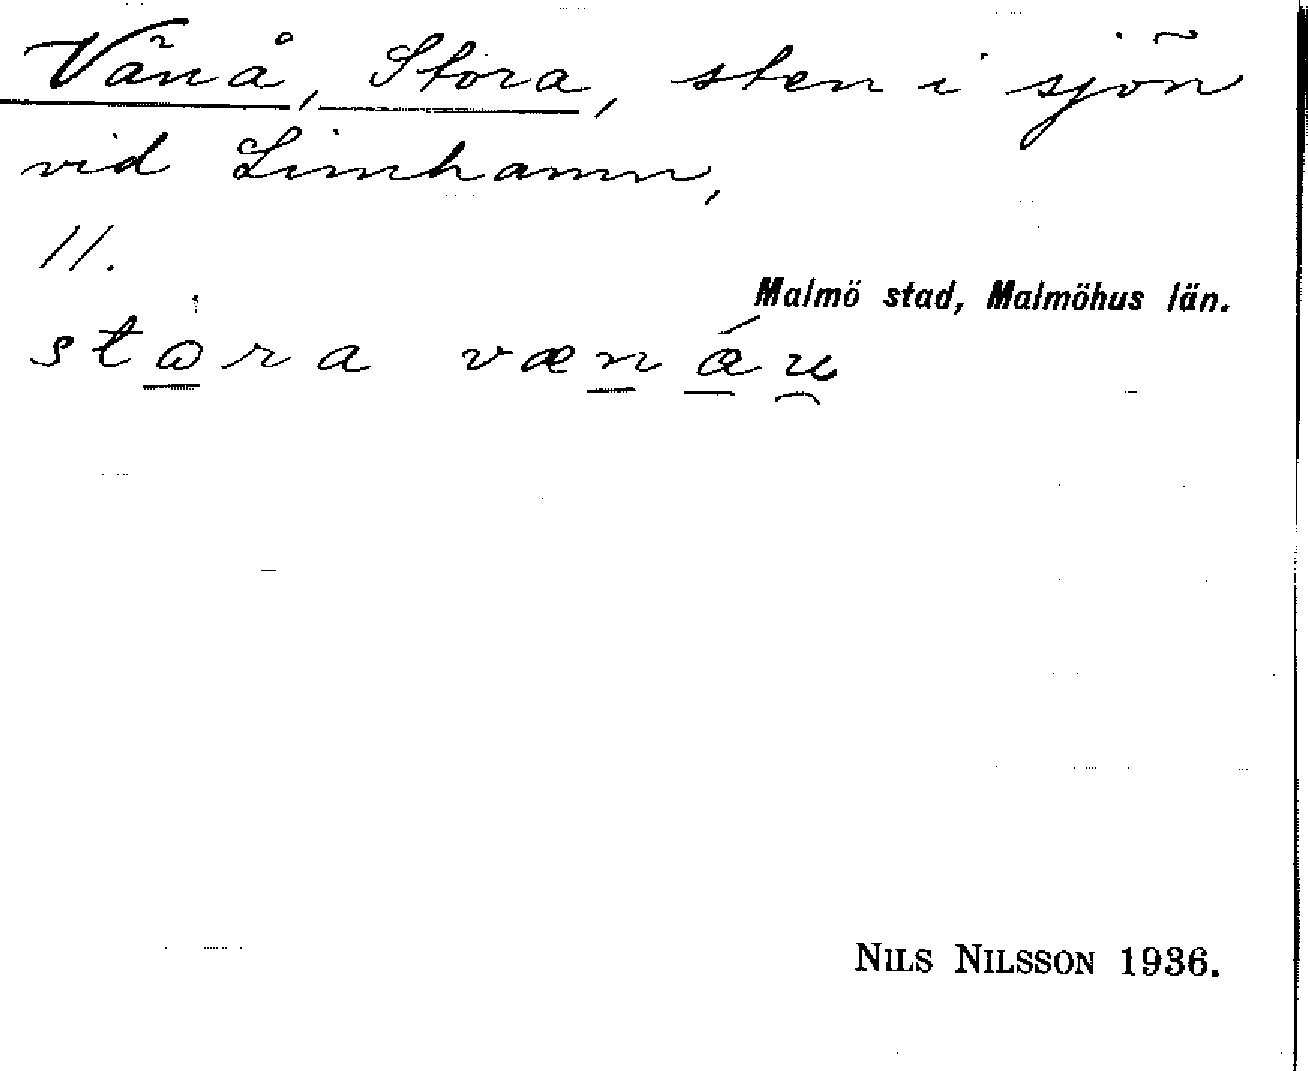 Vänå, Stora, sten i sjön
vid Limhamn,
11.
Malmö stad, Malmöhus län.
stora
NILS NILSSON 1936.